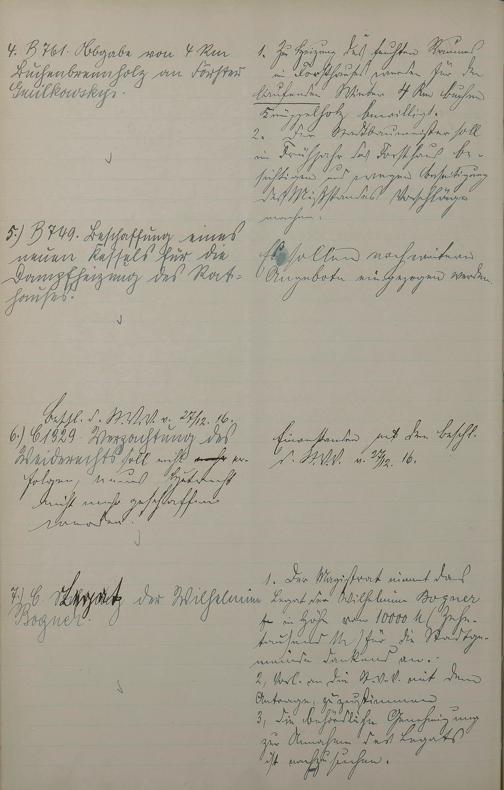 4. B 761. Abgabe von 4 Rm
Buchenbrennholz an Förster
Gmilkowsky.
1. Zu Heizung des feuchten Raumes
im Forsthause werden für den
laufenden Winter 4 Rm buchen
Knüppelholz bewilligt.
2. Der Stadtbaumeister soll
im Frühjahr das Forsthaus be-
sichtigen und wegen Beseitigung
des Mißstandes Vorschläge
machen.
5.) B 749. Beschaffung eines
neuen Kessels für die
Dampfheizung des Rat-
hauses.
Es sollen noch weitere
Angebote eingezogen werden.
Beschl. d. St.V.V. v. 27/12. 16.
6.) C 1929. Verpachtung des
Weiderechts soll nicht er-
folgen, neues
nicht mehr geschaffen
werden.
Einverstanden mit dem Beschl.
d. St.V.V. v. 27/12. 16.
7.) C. Legat der Wilhelmine
Bogner
1. Der Magistrat nimmt das
Legat der Wilhelmine Bogner
in Höhe von 10000 M (Zehn-
tausend M) für die Stadtge-
meinde dankend an.
2, Vorl. an die St.V.V. mit dem
Antrage, zuzustimmen
3, die behördliche Genehmigung
zur Annahme des Legats
ist nachzusuchen.